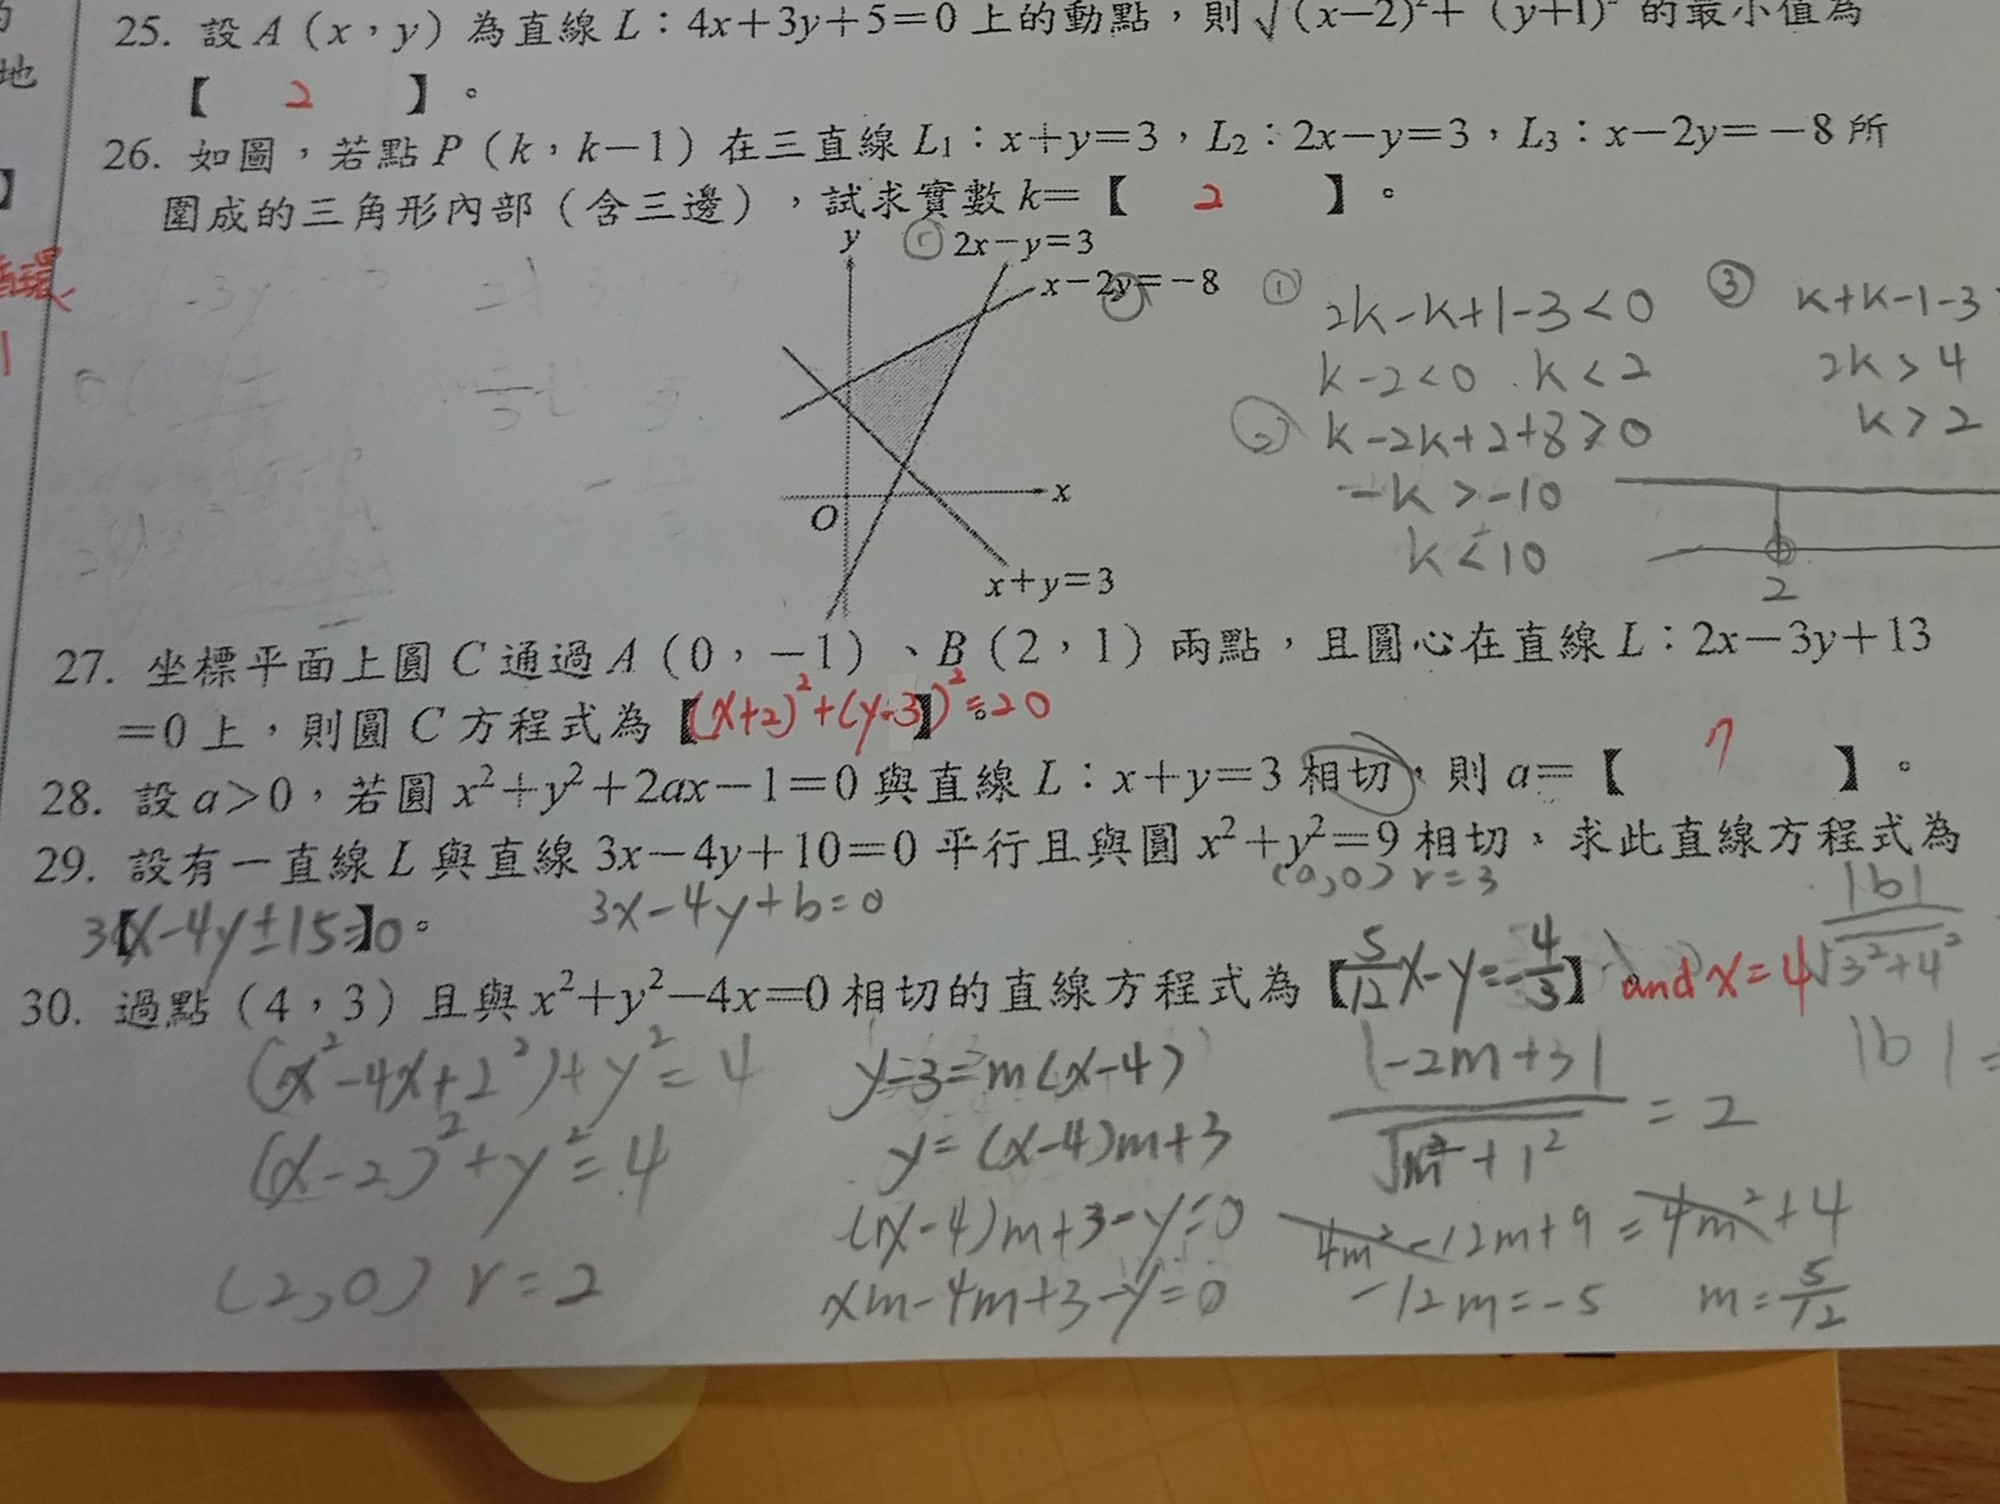 地
25. 設A（x，y）為直線L：4x+3y+5=0上的動點，則√(x−2)²+（y+1)² 的最小值為
【 2 】。
26. 如圖，若點P（k，k−1）在三直線L₁：x+y=3，L₂：2x−y=3，L₃：x−2y=−8所
圍成的三角形內部（含三邊），試求實數k=【 2 】。
y
① 2x−y=3
x−2y=−8
O
x
x+y=3
① 2k-k+1-3<0
k-2<0 k<2
② k-2k+2+8>0
-k>-10
k<10
③ k+k-1-3
2k>4
k>2
2
1
27. 坐標平面上圓C通過A（0，−1）、B（2，1）兩點，且圓心在直線L：2x−3y+13
=0上，則圓C方程式為【(x+2)²+(y-3)²=20】。
28. 設a>0，若圓x²+y²+2ax−1=0與直線L：x+y=3相切，則a=【 7 】。
29. 設有一直線L與直線3x−4y+10=0平行且與圓x²+y²=9相切，求此直線方程式為
(0,0) r=3
【3x-4y±15=0】。
3x-4y+b=0
|b|
√3²+4²
|b|=
30. 過點（4，3）且與x²+y²−4x=0相切的直線方程式為【5/12x-y=-4/3】 and x=4
(x²-4x+2²)+y²=4
(x-2)²+y²=4
(2,0) r=2
y-3=m(x-4)
y=(x-4)m+3
(x-4)m+3-y=0
xm-4m+3-y=0
|-2m+3|
√m²+1² =2
4m²-12m+9=4m²+4
-12m=-5 m=5/12